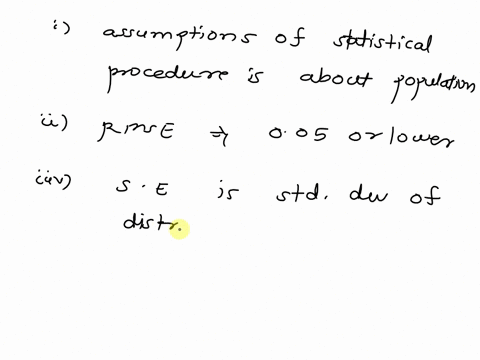 i) assumptions of statistical
procedure is about population
ii) RMSE ⇒ 0.05 or lower
iiv) S.E is std. dev of
distr.